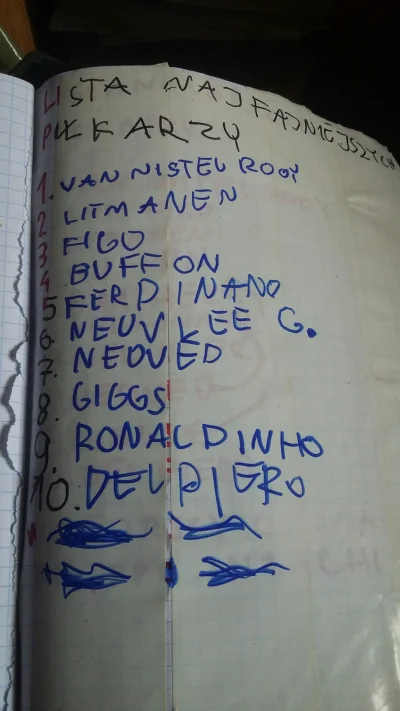 LISTA NAJFAJNIEJSZYCH
PIŁKARZY
1. VAN NISTELROOY
2. LITMANEN
3 FIGO
4 BUFFON
5 FERDINAND
6. NEUVLEE G.
7. NEDVED
8. GIGGS
9. RONALDINHO
10. DEL PIERO